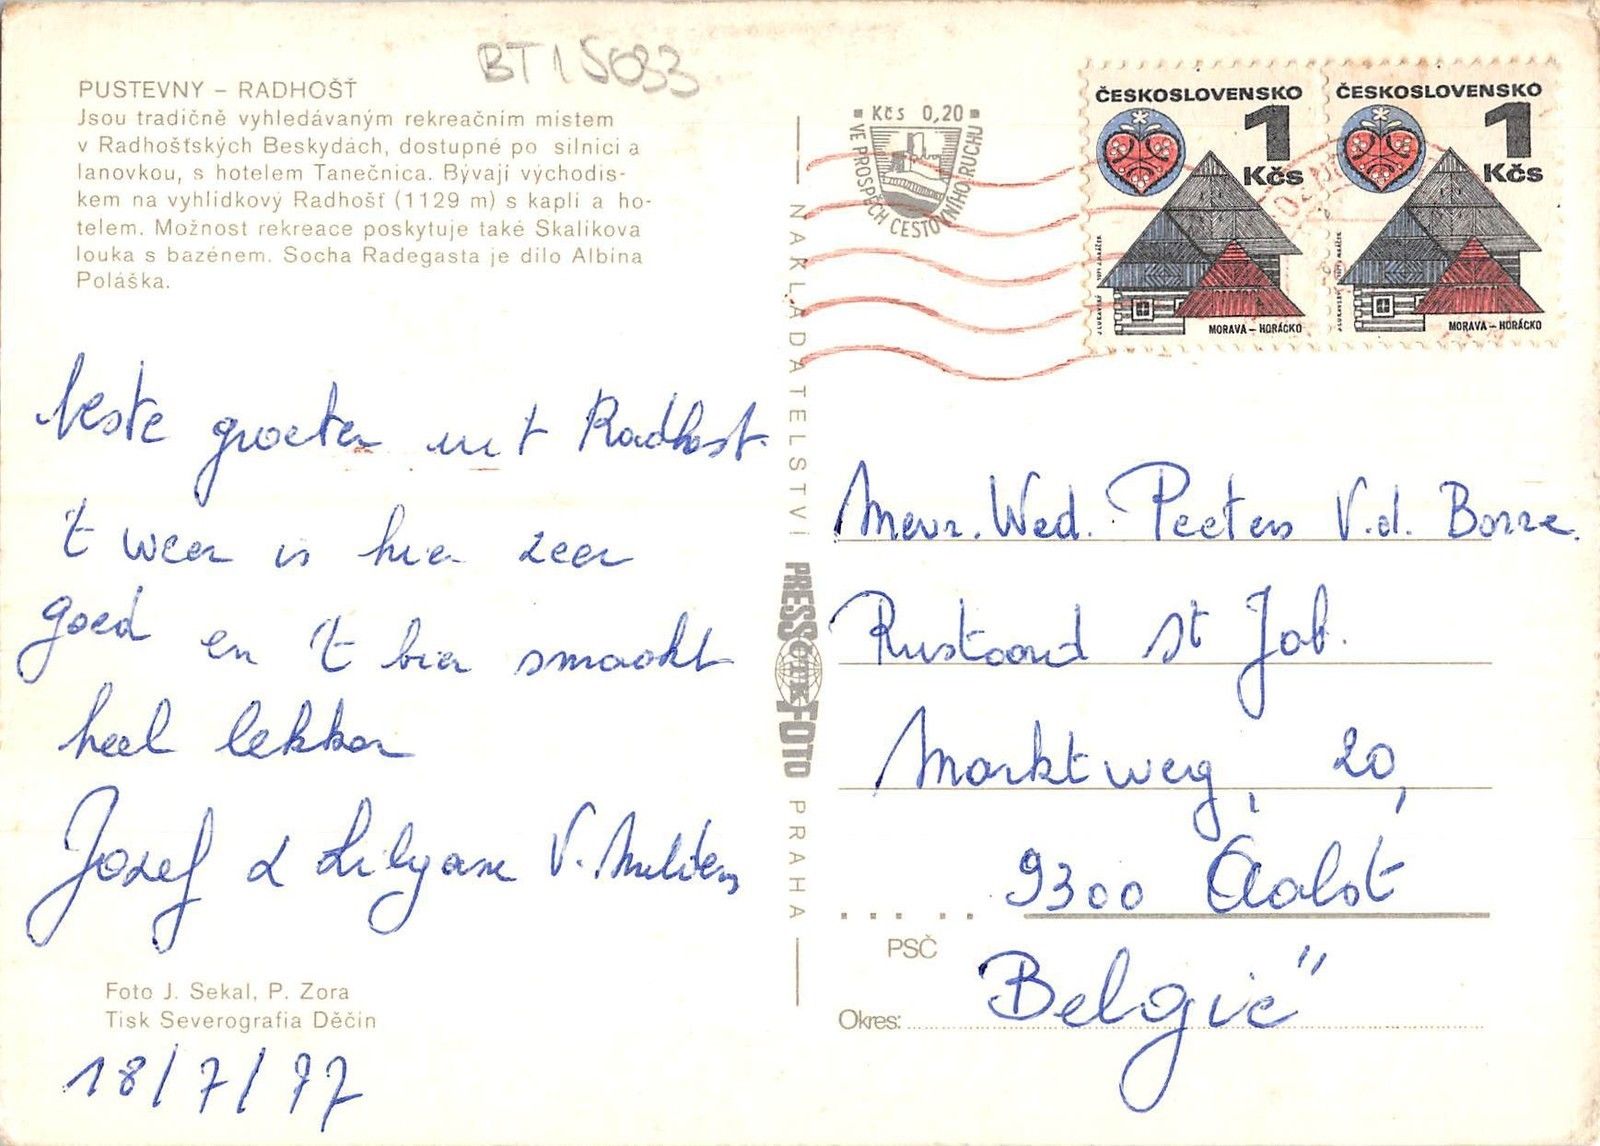 BT15033
PUSTEVNY – RADHOŠŤ
Jsou tradičně vyhledávaným rekreačním místem
v Radhošťských Beskydách, dostupné po silnici a
lanovkou, s hotelem Tanečnica. Bývají východis-
kem na vyhlídkový Radhošť (1129 m) s kaplí a ho-
telem. Možnost rekreace poskytuje také Skalíkova
louka s bazénem. Socha Radegasta je dílo Albína
Poláška.
beste groeten uit Radhost.
't weer is hier zeer
goed en 't bier smaakt
heel lekker
Jozef & Lilyane V.
Foto J. Sekal, P. Zora
Tisk Severografia Děčín
18/7/77
NAKLADATELSTVÍ
PRESSFOTO
PRAHA
Kčs 0,20
VE PROSPĚCH CESTOVNÍHO RUCHU
ČESKOSLOVENSKO
1
Kčs
MORAVA – HORÁCKO
ČESKOSLOVENSKO
1
Kčs
MORAVA – HORÁCKO
Mevr. Wed. Peeters V.d. Borre.
Rustoord St Job.
Marktweg, 20,
9300 Aalst
PSČ
België
Okres: